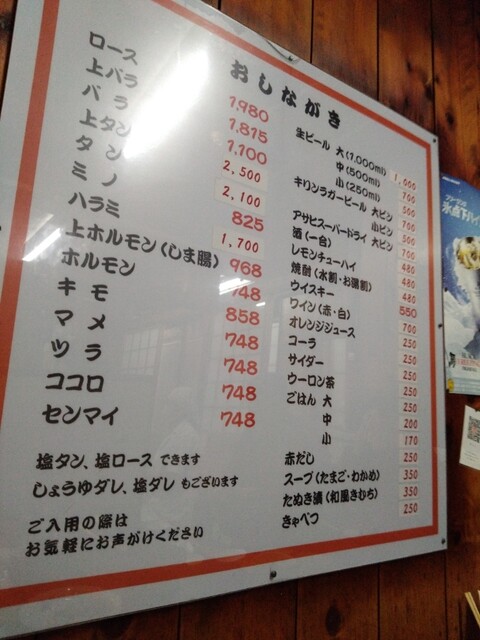 おしながき
ロース 1,980
上バラ 1,815
バラ 1,100
上タン 2,500
タン 2,100
ミノ 825
ハラミ 1,700
上ホルモン(しま腸) 968
ホルモン 748
キモ 858
マメ 748
ツラ 748
ココロ 748
センマイ 748
塩タン、塩ロース できます
しょうゆダレ、塩ダレ もございます
ご入用の際は
お気軽にお声がけください
生ビール 大(1,000ml) 1,000
中(500ml) 700
小(250ml) 500
キリンラガービール 大ビン 700
小ビン 500
アサヒスーパードライ 大ビン 700
酒(一合) 480
レモンチューハイ 480
焼酎(水割・お湯割) 480
ウイスキー 550
ワイン(赤・白) 700
オレンジジュース 250
コーラ 250
サイダー 250
ウーロン茶 250
ごはん 大 250
中 200
小 170
赤だし 250
スープ(たまご・わかめ) 350
たぬき漬(和風きむち) 350
きゃべつ 250
氷点下ハイ